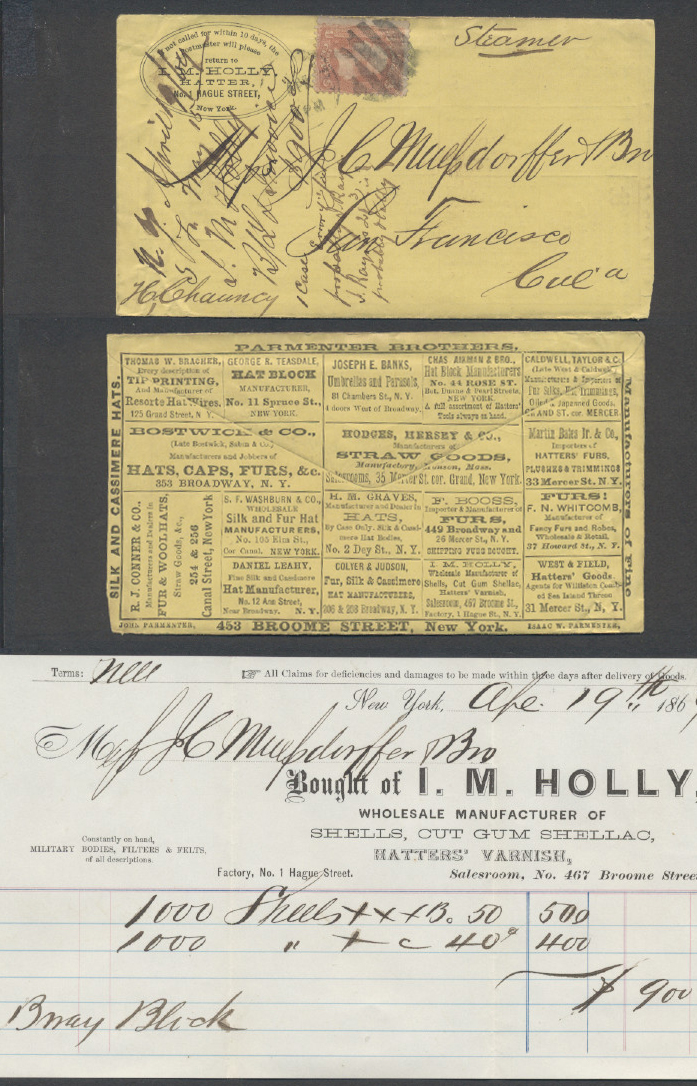 If not called for within 10 days, the
Postmaster will please
return to
I. M. HOLLY,
HATTER,
No. 1 HAGUE STREET,
New York.
Steamer
J. C. Mussdorffer & Bro
San Francisco
Cal a
N. Y. April 19/69
I. M. Holly
$900
1 Case
probably
probably Holly
H. Chauncy
PARMENTER BROTHERS,
SILK AND CASSIMERE HATS.
Manufacturers of Fine
THOMAS W. BRACHER,
Every description of
TIP PRINTING,
And Manufacturer of
Resorte Hat Wires.
125 Grand Street, N. Y.
GEORGE R. TEASDALE,
HAT BLOCK
MANUFACTURER,
No. 11 Spruce St.,
NEW YORK.
JOSEPH E. BANKS,
Umbrellas and Parasols,
81 Chambers St., N. Y.
4 doors West of Broadway.
CHAS AIKMAN & BRO.,
Hat Block Manufacturers
No. 44 ROSE ST.
Bet. Duane & Pearl Streets,
NEW YORK.
A full assortment of Hatters'
Tools always on hand.
CALDWELL, TAYLOR & C.
(Late West & Caldwell,)
Manufacturers & Importers of
Fur Silks, Hat Trimmings,
Oiled & Japanned Goods.
GRAND ST. cor. MERCER
BOSTWICK & CO.,
(Late Bostwick, Salon & Co.)
Manufacturers and Jobbers of
HATS, CAPS, FURS, &c.
353 BROADWAY, N. Y.
HODGES, HERSEY & CO.,
Manufacturers of
STRAW GOODS,
Manufactory, Monson, Mass.
Salesrooms, 35 Mercer St. cor. Grand, New York.
Martin Bates Jr. & Co.,
Importers of
HATTERS' FURS,
PLUSHES & TRIMMINGS
33 Mercer St. N. Y.
R. J. CONNER & CO.
Manufacturers and Dealers in
FUR & WOOL HATS,
Straw Goods, &c.,
254 & 256
Canal Street, New York
S. F. WASHBURN & CO.,
WHOLESALE
Silk and Fur Hat
MANUFACTURERS,
No. 105 Elm St.,
Cor Canal. NEW YORK.
H. M. GRAVES,
Manufacturer and Dealer in
HATS,
By Case Only. Silk & Cassimere Hat Bodies,
No. 2 Dey St., N. Y.
F. BOOSS,
Importer & Manufacturer of
FURS,
449 Broadway and
26 Mercer St., N. Y.
SHIPPING FURS BOUGHT.
FURS!
F. N. WHITCOMB,
Manufacturer of
Fancy Furs and Robes,
Wholesale & Retail.
37 Howard St., N. Y.
DANIEL LEAHY,
Fine Silk and Cassimere
Hat Manufacturer,
No. 12 Ann Street,
Near Broadway. N. Y.
COLYER & JUDSON,
Fur, Silk & Cassimere
HAT MANUFACTURERS,
206 & 208 Broadway, N. Y.
I. M. HOLLY,
Wholesale Manufacturer of
Shells, Cut Gum Shellac,
Hatters' Varnish,
Salesroom, 467 Broome St.,
Factory, 1 Hague St., N. Y.
WEST & FIELD,
Hatters' Goods.
Agents for Williston Covered
ed Sea Island Thread
31 Mercer St., N. Y.
JOHN PARMENTER,
453 BROOME STREET, New York.
ISAAC W. PARMENTER,
Terms: Nett
☞ All Claims for deficiencies and damages to be made within three days after delivery of Goods.
New York, Apr. 19th 1869
Mess J C Mussdorffer & Bro
Bought of I. M. HOLLY,
WHOLESALE MANUFACTURER OF
SHELLS, CUT GUM SHELLAC,
HATTERS' VARNISH,
Constantly on hand,
MILITARY BODIES, FILTERS & FELTS,
of all descriptions.
Factory, No. 1 Hague Street.
Salesroom, No. 467 Broome Street
1000 Shells + + + B. 50 500
1000 " + c 40 400
$ 900
Bray Block